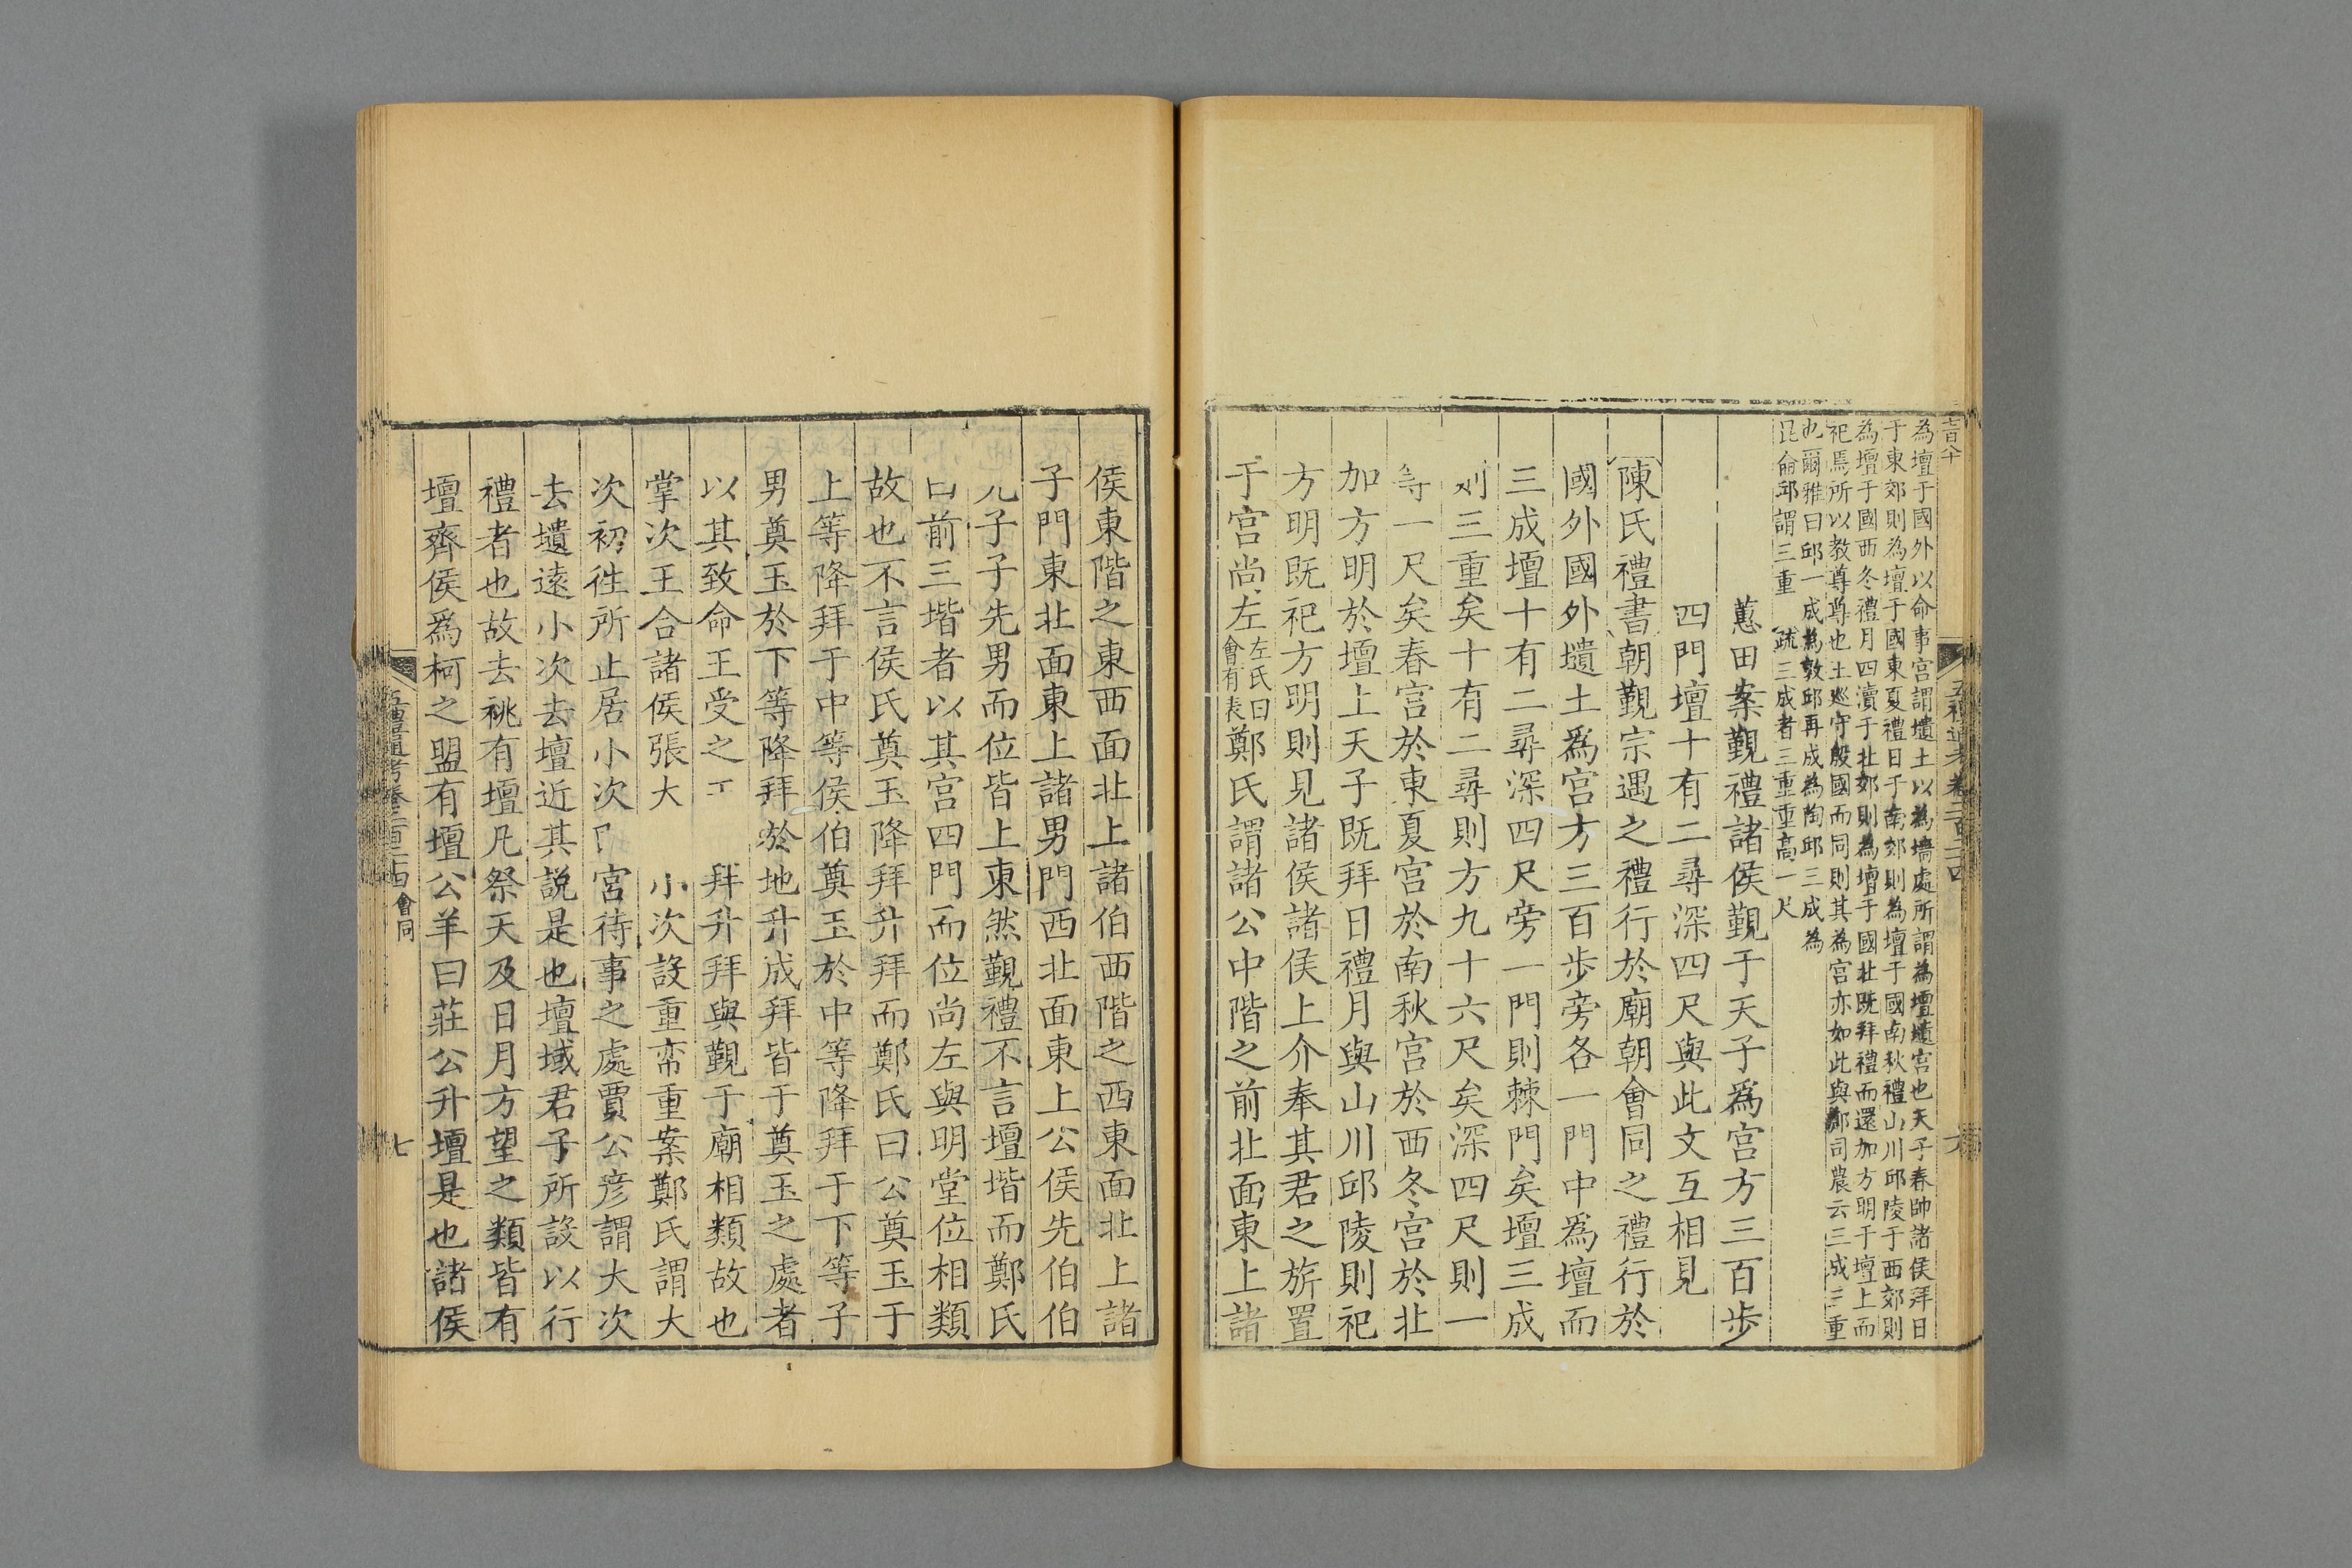 為壇于國外以命事宫謂壝土以為墻處所謂為壇壝宫也天子春帥諸侯拜日
于東郊則為壇于國東夏禮日于南郊則為壇于國南秋禮山川邱陵于西郊則
為壇于國西冬禮月四瀆于北郊則為壇于國北既拜禮而還加方明于壇上而
祀焉所以教尊尊也王巡守殷國而同則其為宫亦如此與鄭司農云三成三重
也爾雅曰邱一成為敦邱再成為陶邱三成為
昆侖邱謂三重　疏三成者三重重高一尺
蕙田案覲禮諸侯覲于天子爲宫方三百歩
四門壇十有二尋深四尺與此文互相見
陳氏禮書朝覲宗遇之禮行於廟朝會同之禮行於
國外國外壝土爲宫方三百歩旁各一門中爲壇而
三成壇十有二尋深四尺旁一門則棘門矣壇三成
則三重矣十有二尋則方九十六尺矣深四尺則一
等一尺矣春宫於東夏宫於南秋宫於西冬宫於北
加方明於壇上天子既拜日禮月與山川邱陵則祀
方明既祀方明則見諸侯諸侯上介奉其君之旂置
于宫尚左左氏曰會有表鄭氏謂諸公中階之前北面東上諸
侯東階之東西面北上諸伯西階之西東面北上諸
子門東北面東上諸男門西北面東上公侯先伯伯
先子子先男而位皆上東然覲禮不言壇堦而鄭氏
曰前三堦者以其宫四門而位尚左與明堂位相類
故也不言侯氏奠玉降拜升拜而鄭氏曰公奠玉于
上等降拜于中等侯伯奠玉於中等降拜于下等子
男奠玉於下等降拜於地升成拜皆于奠玉之處者
以其致命王受之 拜升拜與覲于廟相類故也
掌次王合諸侯張大 小次設重帟重案鄭氏謂大
次初徃所止居小次 宫待事之處賈公彦謂大次
去壝遠小次去壇近其說是也壇域君子所設以行
禮者也故去祧有壇凡祭天及日月方望之類皆有
壇齊侯爲柯之盟有壇公羊曰莊公升壇是也諸侯
五禮通考卷二百二十四
六
五禮通考卷二百二十四 會同
七